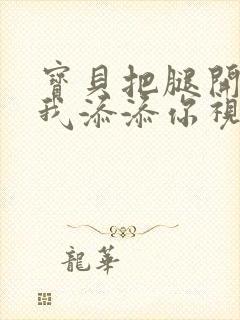 寶貝把腿開
我添添你視
龍華